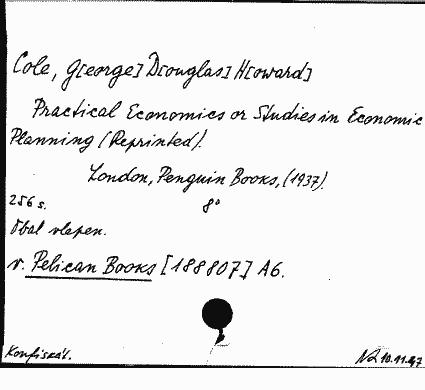 Cole, G[eorge] D[ouglas] H[oward]
Practical Economics or Studies in Economic
Planning (Reprinted).
London, Penguin Books, (1937).
256 s. 8°
Obal vlepen.
v. Pelican Books [188807] A6.
Konfiskát. 10.11.47